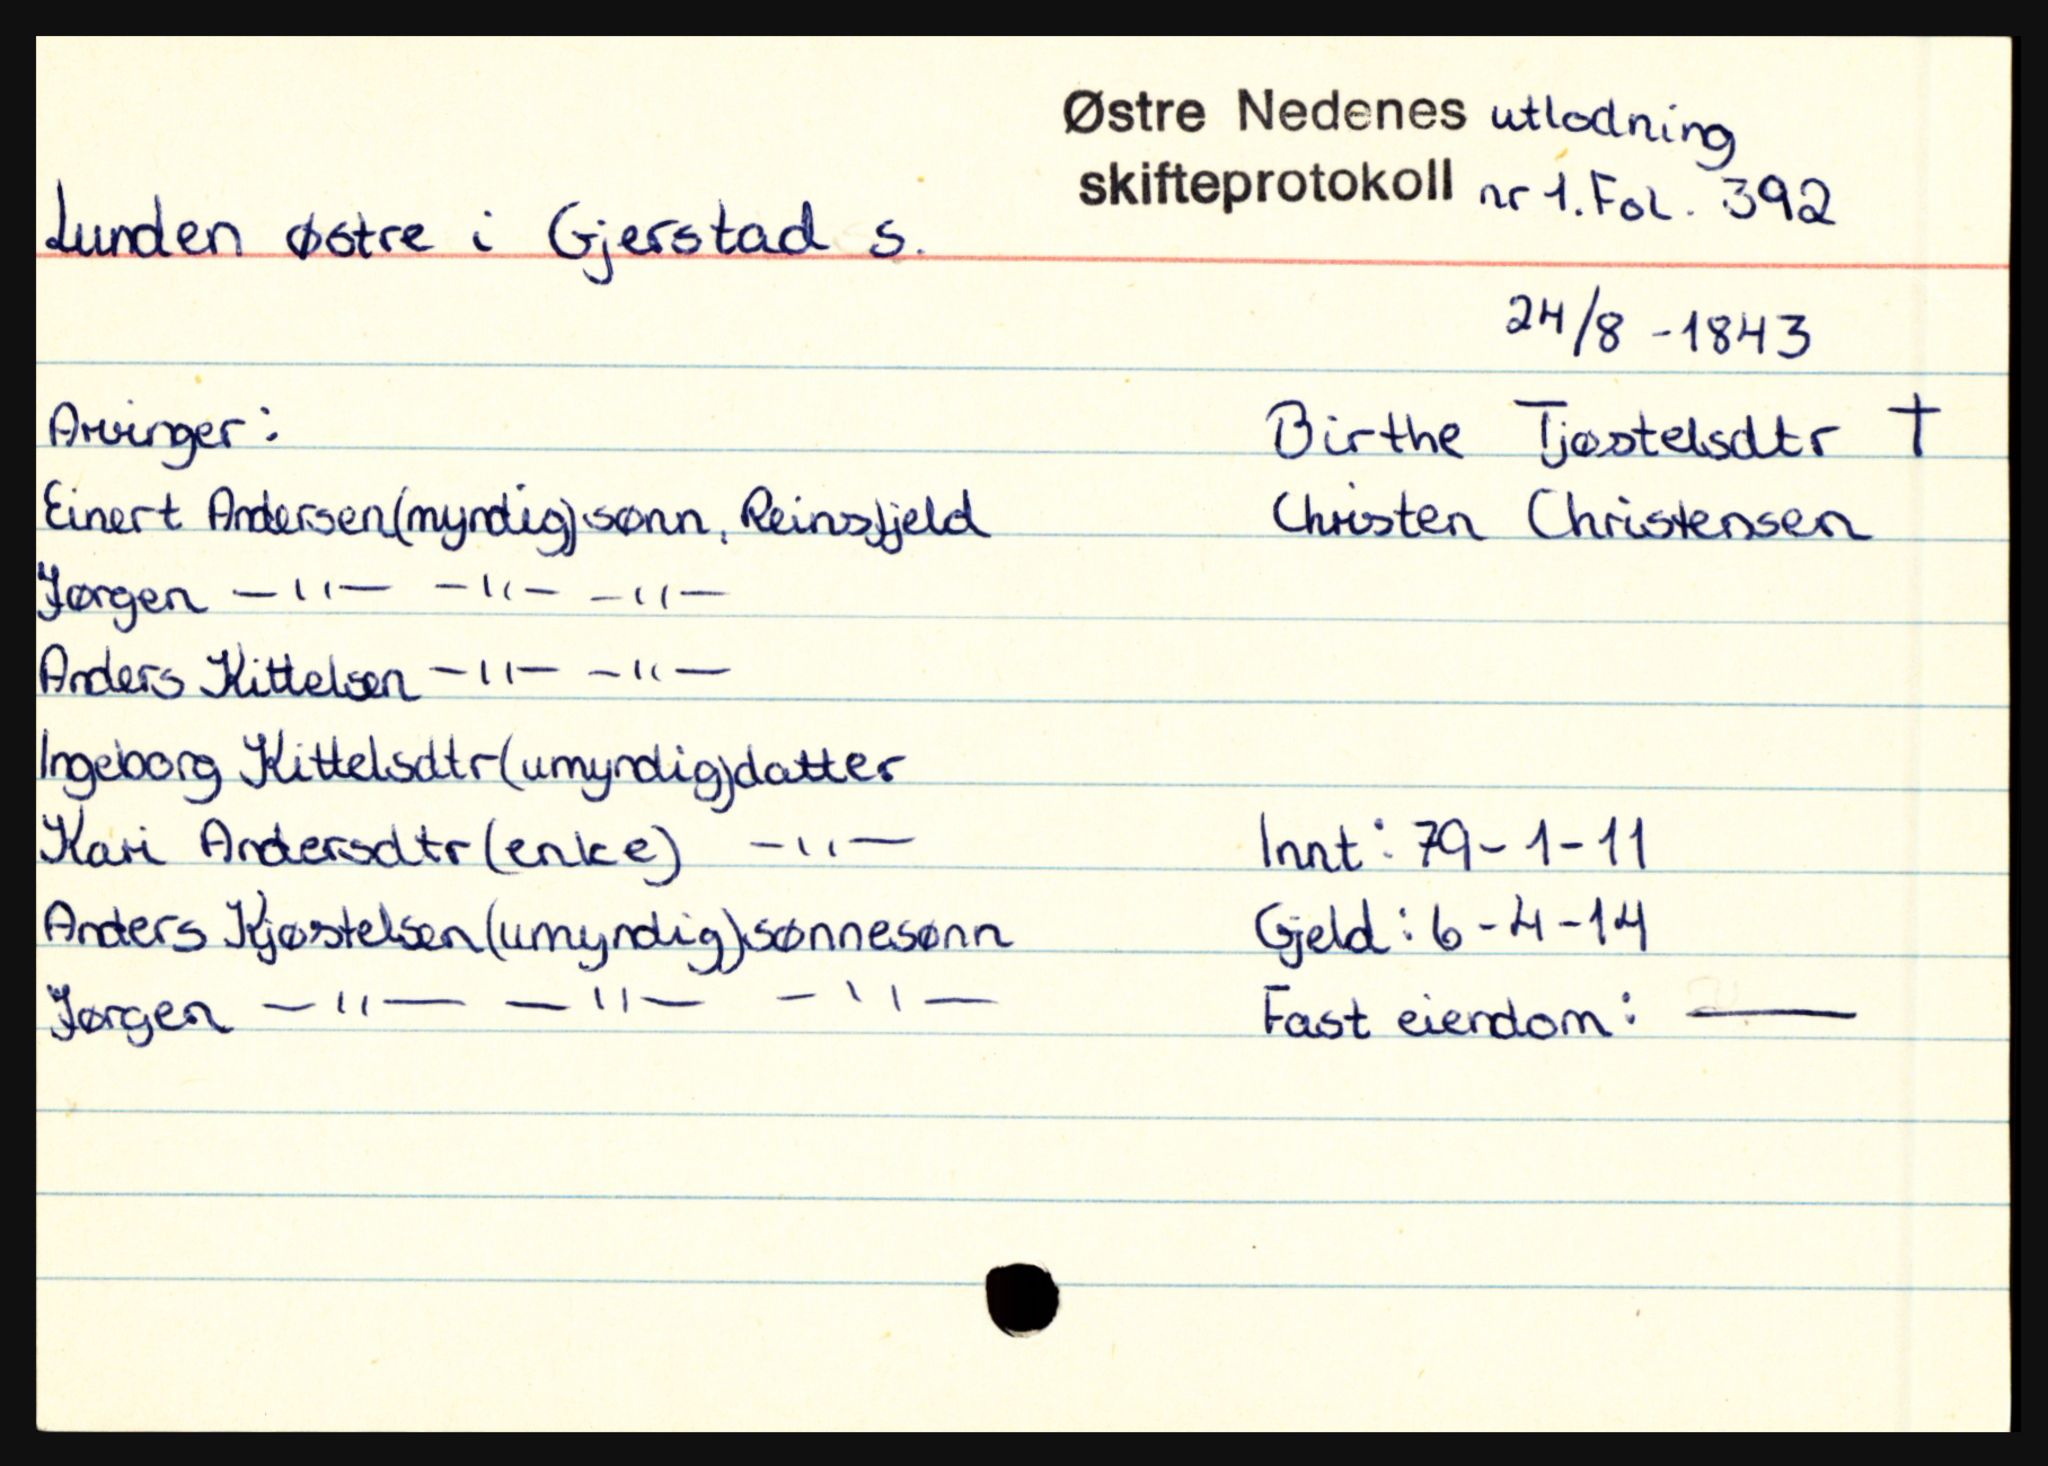 Østre Nedenes utlodning
skifteprotokoll nr 1. Fol. 392
Lunden østre i Gjerstad s.
24/8 - 1843
Arvinger: Birthe Tjøstelsdtr †
Einert Andersen (myndig) sønn, Reinsfjeld Christen Christensen
Jørgen —"— —"— —"—
Anders Kittelsen —"— —"—
Ingeborg Kittelsdtr (umyndig) datter
Kari Andersdtr (enke) —"— Innt: 79 - 1 - 11
Anders Kjøstelsen (umyndig) sønnesønn Gjeld: 6 - 4 - 14
Jørgen —"— —"— —"— Fast eiendom: —